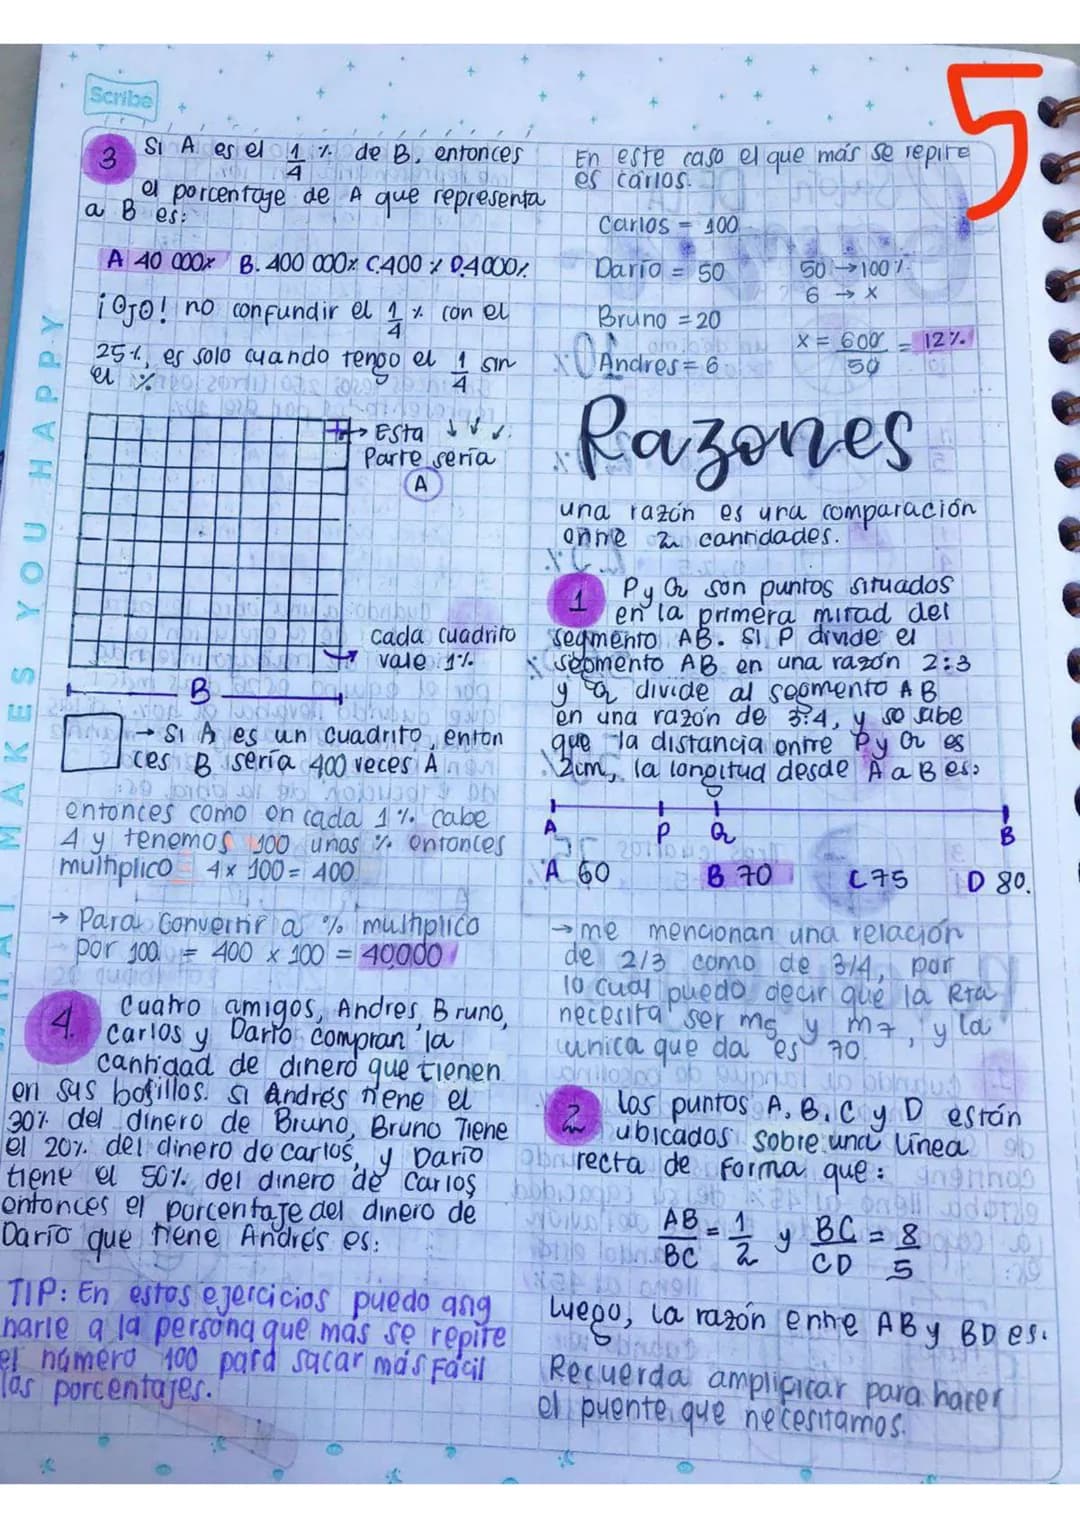 Scribe
5
WHAT MAKES YOU HAPPY
3 Si A es el 1/4 % de B, entonces
el porcentaje de A que representa
a B es:
A 40 000% B. 400 000% C.400 % D.4000%
¡OJO! no confundir el 1/4 % con el
25%, es solo cuando tengo el 1/4 sin
el %
→ Esta ↓ ↓ ↓
Parte sería
A
cada cuadrito
vale 1%
B
→ Si A es un cuadrito, enton
ces B sería 400 veces A
entonces como en cada 1 % cabe
4 y tenemos 100 unos % entonces
multiplico = 4 x 100 = 400
→ Para convertir a % multiplico
por 100 = 400 x 100 = 40,000
4. Cuatro amigos, Andres, Bruno,
Carlos y Darío compran la
cantidad de dinero que tienen
en sus bolsillos. Si Andrés tiene el
30% del dinero de Bruno, Bruno Tiene
el 20% del dinero de Carlos, y Darío
tiene el 50% del dinero de Carlos
entonces el porcentaje del dinero de
Darío que tiene Andrés es:
TIP: En estos ejercicios puedo asig
narle a la persona que mas se repite
el número 100 para sacar más Fácil
los porcentajes.
En este caso el que más se repite
es carlos.
Carlos = 100
Darío = 50
50 → 100%
6 → X
Bruno = 20
X = 600/50 = 12%
Andres = 6
Razones
una razón es una comparación
entre 2 cantidades.
1 P y Q son puntos situados
en la primera mitad del
segmento AB. Si P divide el
segmento AB en una razón 2:3
y Q divide al segmento AB
en una razón de 3:4, y se sabe
que la distancia entre P y Q es
2cm, la longitud desde A a B es:
A P Q B
A 60 B 70 C 75 D 80.
→ me mencionan una relación
de 2/3 como de 3/4, por
lo cual puedo decir que la Rta
necesita ser m5 y m7, y la
unica que da es 70.
2 los puntos A, B, C y D están
ubicados sobre una línea
recta de forma que:
AB/BC = 1/2 y BC/CD = 8/5
Luego, la razón entre AB y BD es:
Recuerda amplificar para hacer
el puente que necesitamos.